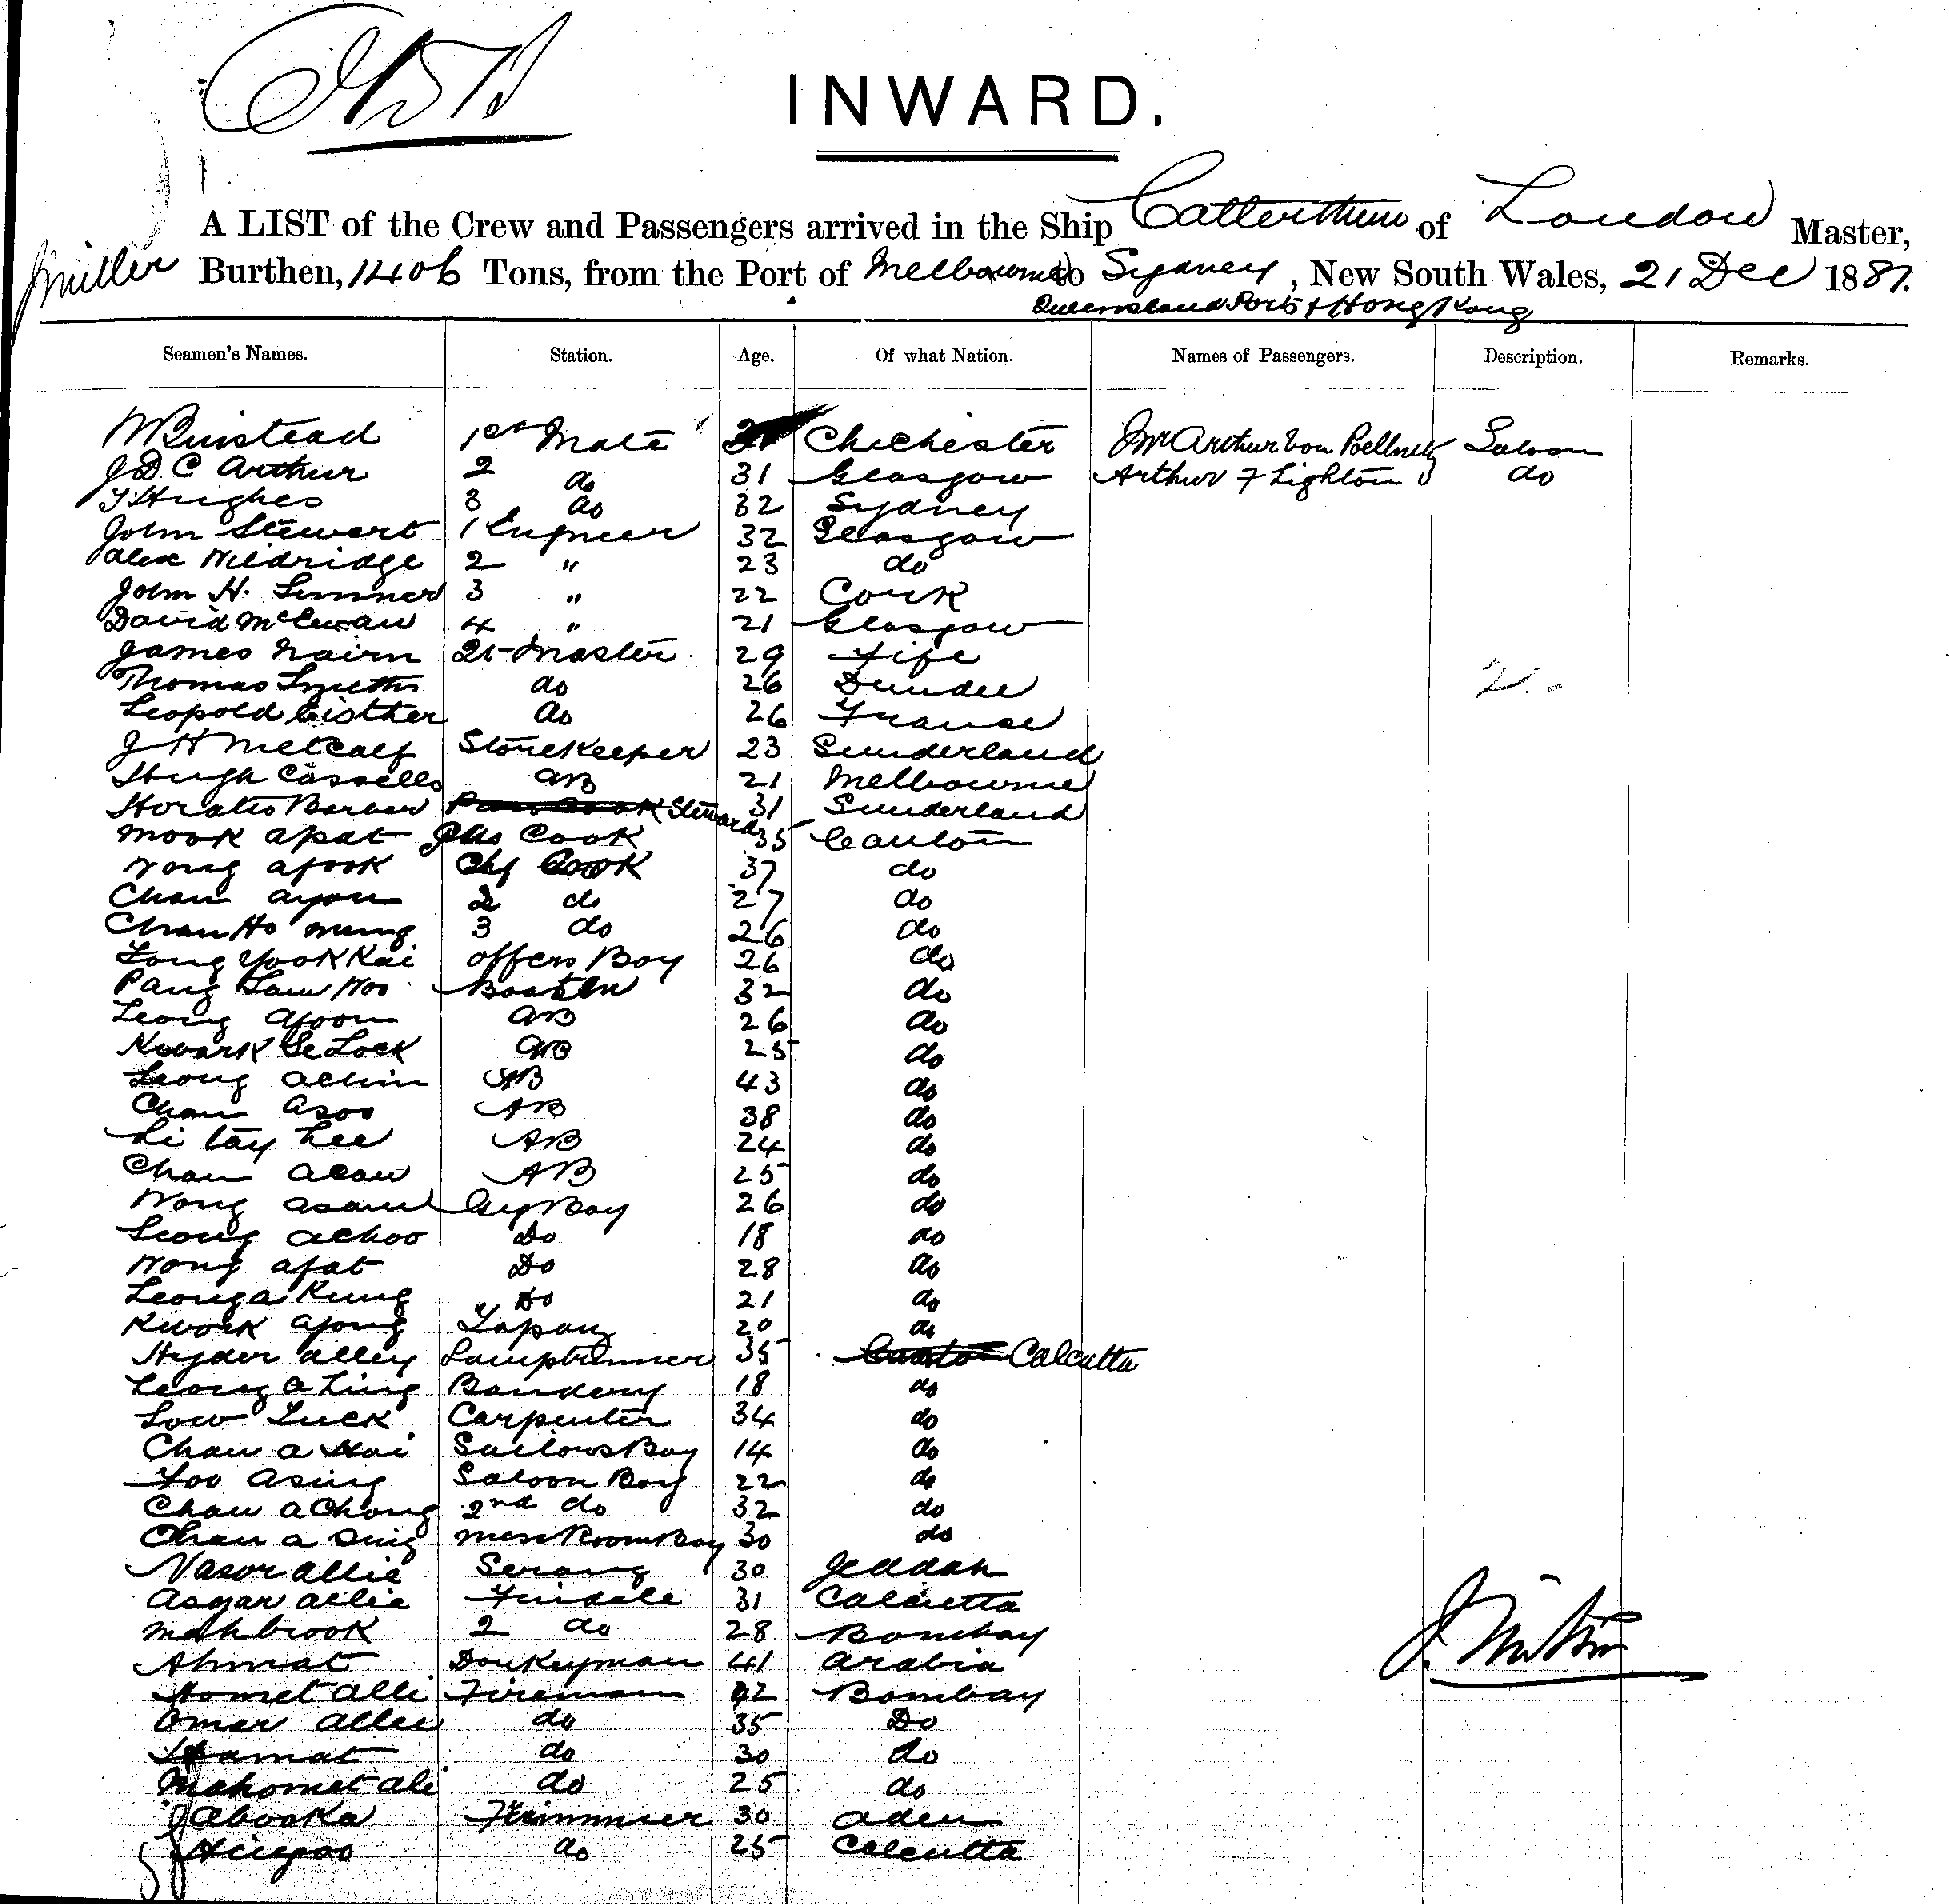 INWARD.
A LIST of the Crew and Passengers arrived in the Ship Catterthun of London Master,
Miller Burthen, 1406 Tons, from the Port of Melbourne to Sydney, New South Wales, 21 Dec 1887.
Queensland Ports & Hong Kong
Seamen's Names. Station. Age. Of what Nation. Names of Passengers. Description. Remarks.
W Binstead 1st Mate Chichester Mr Arthur Von Saloon
J D C Arthur 2 do 31 Glasgow Arthur F Lighton do
T Hughes 3 do 32 Sydney
John Stewart 1 Engineer 32 Glasgow
Alex Wildridge 2 " 23 do
John H. Sumner 3 " 22 Cork
David McEwan 4 " 21 Glasgow
James Nairn Qr Master 29 Fife
Thomas Smith do 26 Dundee
Leopold do 26 France
J H Metcalf Storekeeper 23 Sunderland
Hugh Cassells AB 21 Melbourne
Horatio Barber Steward 31 Sunderland
Mook Apat Cook 35 Canton
Wong Afook Chf Cook 37 do
Chan Ayou 2 do 27 do
Chan Ho Mung 3 do 26 do
Fong Yook Kai offers Boy 26 do
Pang Lam Woo Boatsn 32 do
Leong Afoon AB 26 do
Kwark Se Lock AB 25 do
Leong Achin AB 43 do
Chan Asoo AB 38 do
Li Tay Lee AB 24 do
Chan Acau AB 25 do
Wong Asam Boy 26 do
Leong Achoo Do 18 do
Wong Afat Do 28 do
Leong a Kung Do 21 do
Kwork Afong 20 do
Hyder Alley Lamptrimmer 35 Canton Calcutta
Leong a Ling Bandery 18 do
Low Luck Carpenter 34 do
Chan a Hoi Sailors Boy 14 do
Foo Asing Saloon Boy 22 do
Chan a Chong 2nd do 32 do
Chan a Sing Mess Room Boy 30 do
Nasor Allie Serang 30 Jeddah
Asgar Allie Tindale 31 Calcutta
Mahbrook 2 do 28 Bombay
Ahmat Donkeyman 41 Arabia
Homet Alli Fireman 32 Bombay
Omar Allie do 35 Do
do 30 do
Mahomet Ali do 25 do
Jabooka Trimmer 30 Aden
do 25 Calcutta